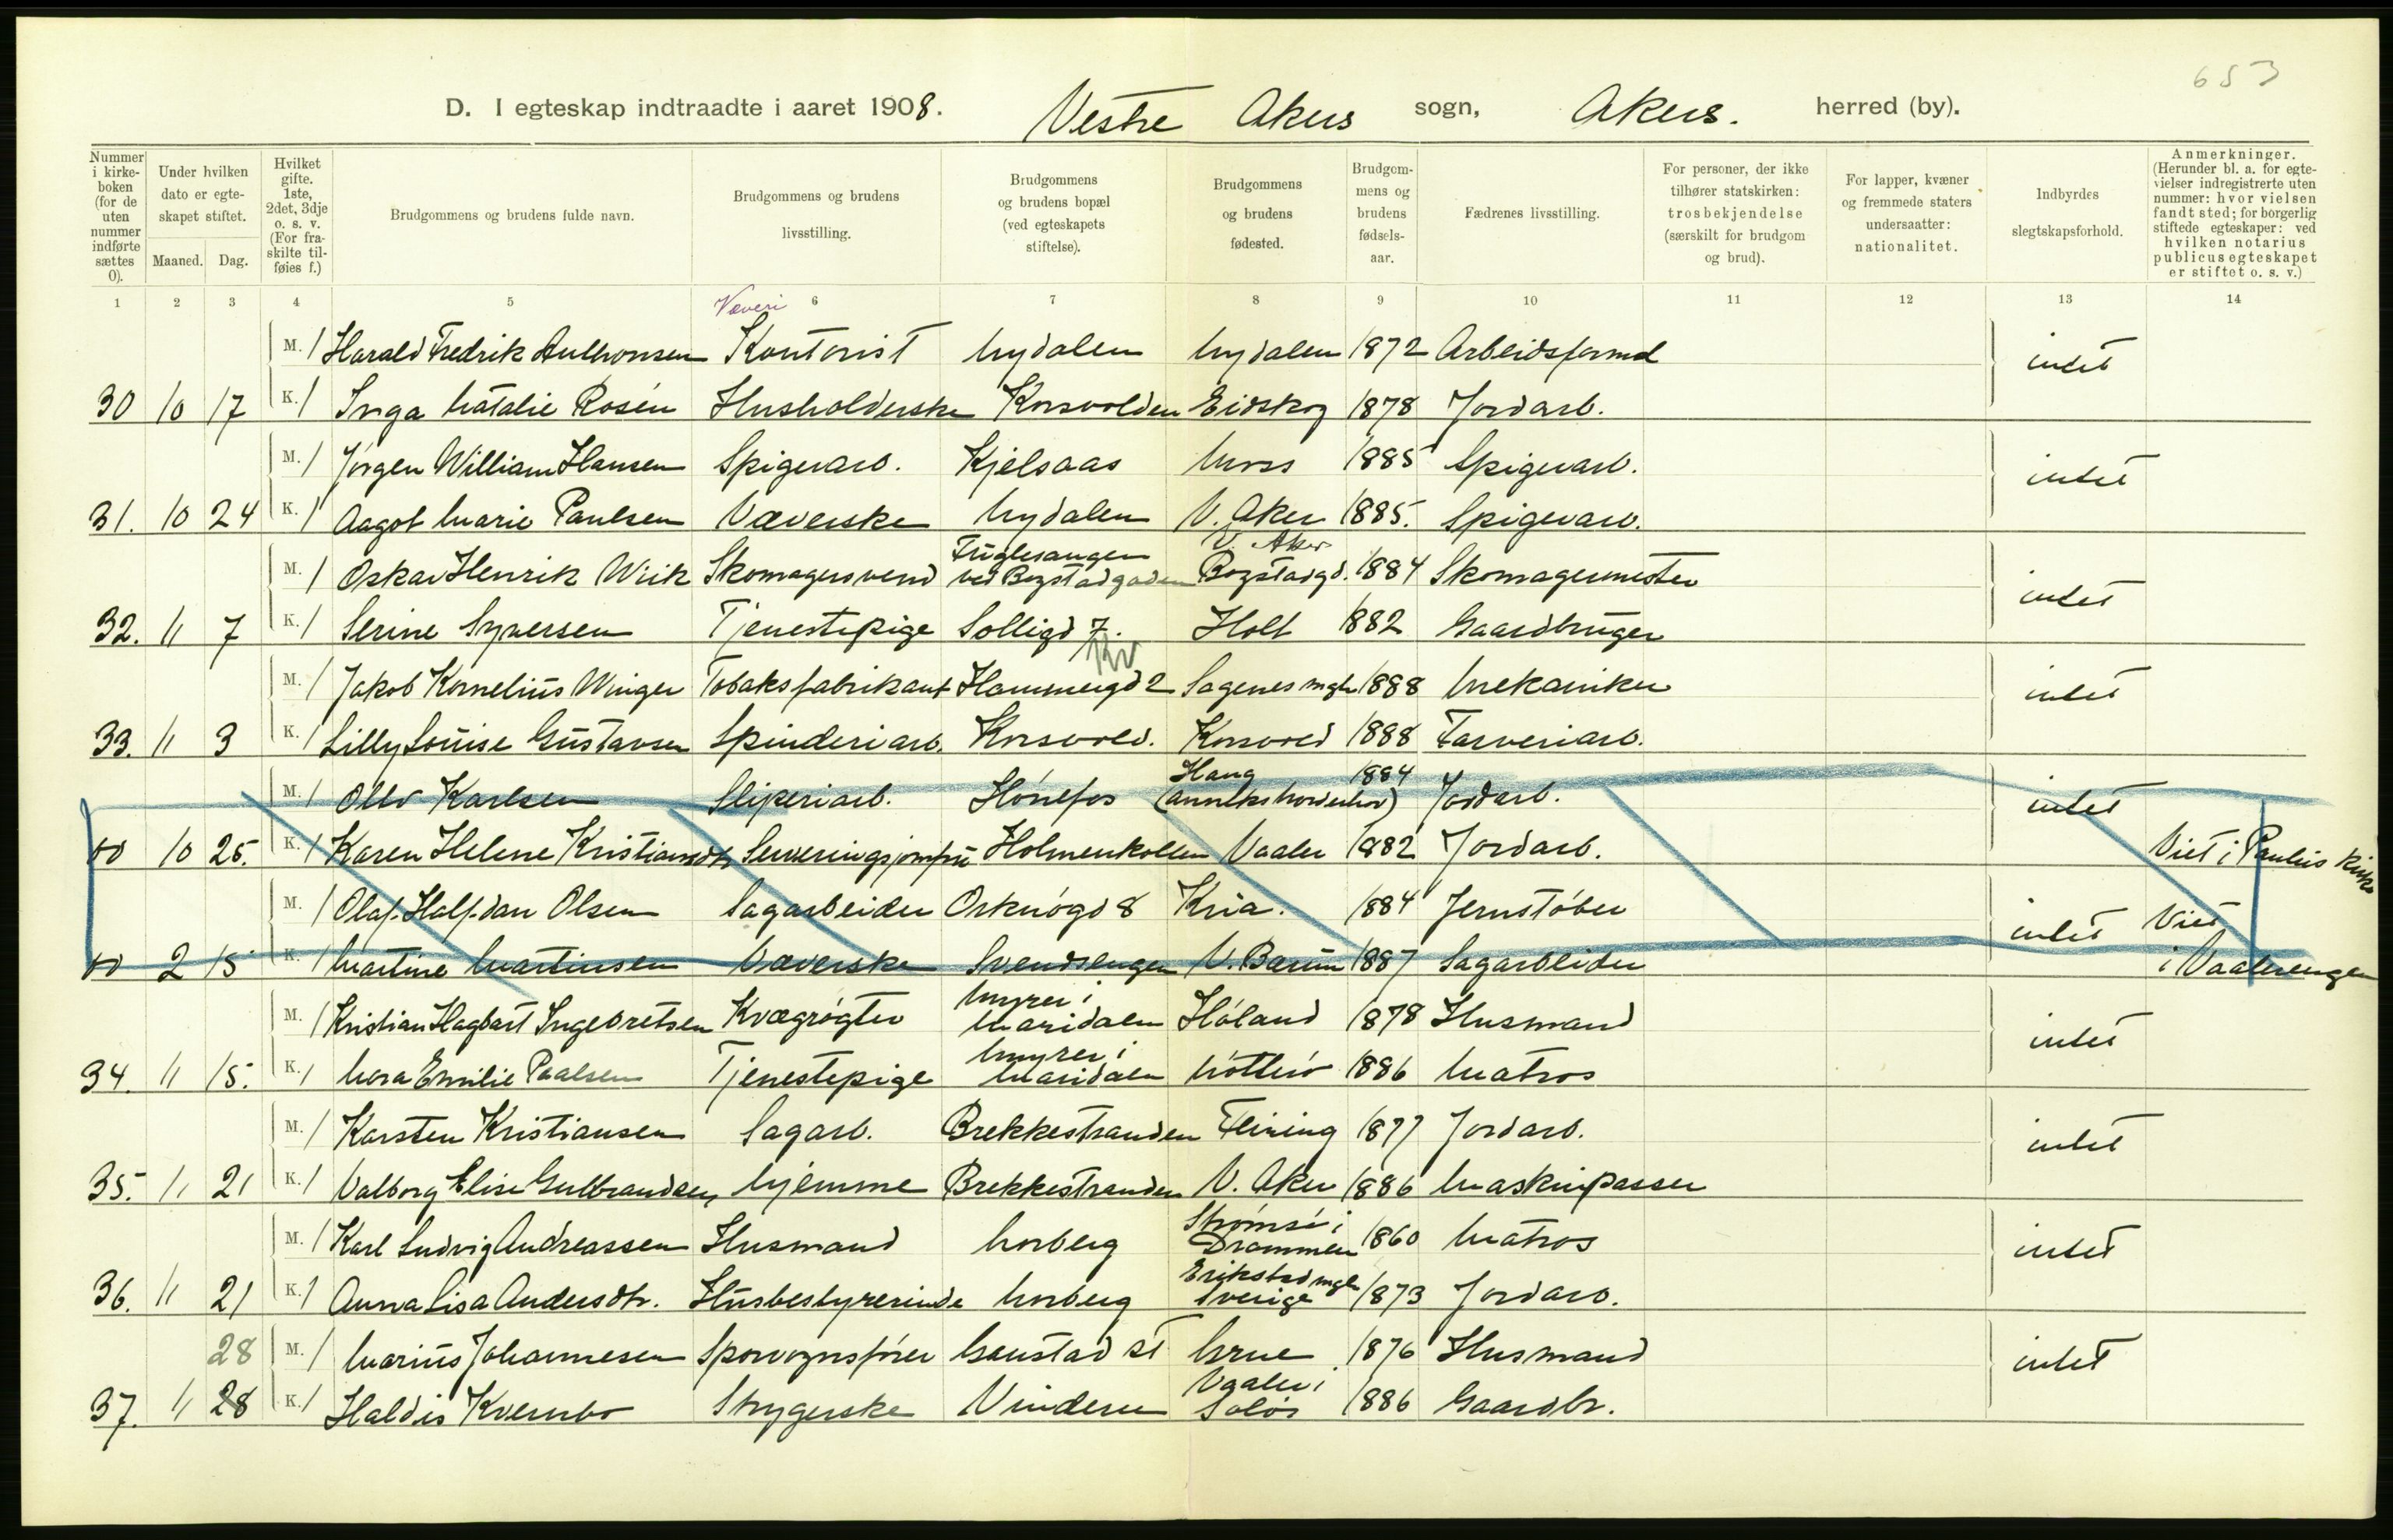 653
D. I egteskap indtraadte i aaret 1908. Vestre Akers sogn, Akers. herred (by).
Nummer i kirke-boken (for de uten nummer indførte sættes 0).
Under hvilken dato er egte-skapet stiftet.
Maaned. Dag.
Hvilket gifte. 1ste, 2det, 3dje o. s. v. (For fra-skilte til-føies f.)
Brudgommens og brudens fulde navn.
Brudgommens og brudens livsstilling.
Brudgommens og brudens bopæl (ved egteskapets stiftelse).
Brudgommens og brudens fødested.
Brudgom-mens og brudens fødsels-aar.
Fædrenes livsstilling.
For personer, der ikke tilhører statskirken: trosbekjendelse (særskilt for brudgom og brud).
For lapper, kvæner og fremmede staters undersaatter: nationalitet.
Indbyrdes slegtskapsforhold.
Anmerkninger. (Herunder bl. a. for egte-vielser indregistrerte uten nummer: hvor vielsen fandt sted; for borgerlig stiftede egteskaper: ved hvilken notarius publicus egteskapet er stiftet o. s. v.)
1 2 3 4 5 6 7 8 9 10 11 12 13 14
Væveri
M. 1 Harald Fredrik Anthonsen Kontorist Nydalen Nydalen 1872 Arbeidsformd intet
30 10 17 K. 1 Inga Natalie Rosén Husholderske Korsvolden Eidskog 1878 Jordarb.
M. 1 Jørgen William Hansen Spigerarb. Kjelsaas Moss 1885 Spigerarb. intet
31. 10 24 K. 1 Aagot Marie Paulsen Væverske Nydalen V. Aker 1885. Spigerarb.
Fuglesangen V. Aker
M. 1 Oskar Henrik Wiik Skomagersvend ved Bogstadgaden Bogstadgd. 1884 Skomagermester intet
32. 11 7 K. 1 Serine Syversen Tjenestepige Solligd 7. Holt 1882 Gaardbruger
Kr
M. 1 Jakob Kornelius Winger Tobaksfabrikant Hammergd 2 Sagenes mgh 1888 Mekaniker intet
33. 11 3 K. 1 Lilly Louise Gustavsen Spinderiarb. Korsvold. Korsvold 1888 Farveriarb.
Haug 1884
M. 1 Otto Karlsen Sliperiarb. Hønefos (Anneks Norderhov) Jordarb. intet
00 10 25. K. 1 Karen Helene Kristiansdtr Serveringsjomfru Holmenkollen Vaaler 1882 Jordarb. Viet i Paulus Kirke
M. 1 Olaf Halfdan Olsen Sagarbeider Osknøgd 8 Kria. 1884 Jernstøber intet Viet
00 2 15 K. 1 Martine Martinsen Væverske Svendsengen V. Bærum 1887 Sagarbeider i Vaalerengen
Myrer i
M. 1 Kristian Hagbart Ingebretsen Kvægrøgter Maridalen Høland 1878 Husmand intet
Myrer i
34. 11 15. K. 1 Nora Emilie Paalsen Tjenestepige Maridalen Nøtterø 1886 Matros
M. 1 Karsten Kristiansen Sagarb. Brekkestranden Flining 1877 Jordarb. intet
35. 11 21 K. 1 Valborg Elise Gulbrandsen Hjemme Brekkestranden V. Aker 1886 Maskinpasser
Strømsø i
M. 1 Karl Ludvig Andreassen Husmand Norberg Drammen 1860 Matros intet
Erikstad mgh
36. 11 21 K. 1 Anna Lisa Andersdtr. Husbestyrerinde Norberg Sverige 1873 Jordarb.
28 M. 1 Marius Johannesen Sporvognsfører Gaustad St Grue 1876 Husmand intet
Vaaler i
37. 11 28 K. 1 Haldis Kvernbo Strygerske Vinderen Solør 1886 Gaardbr.